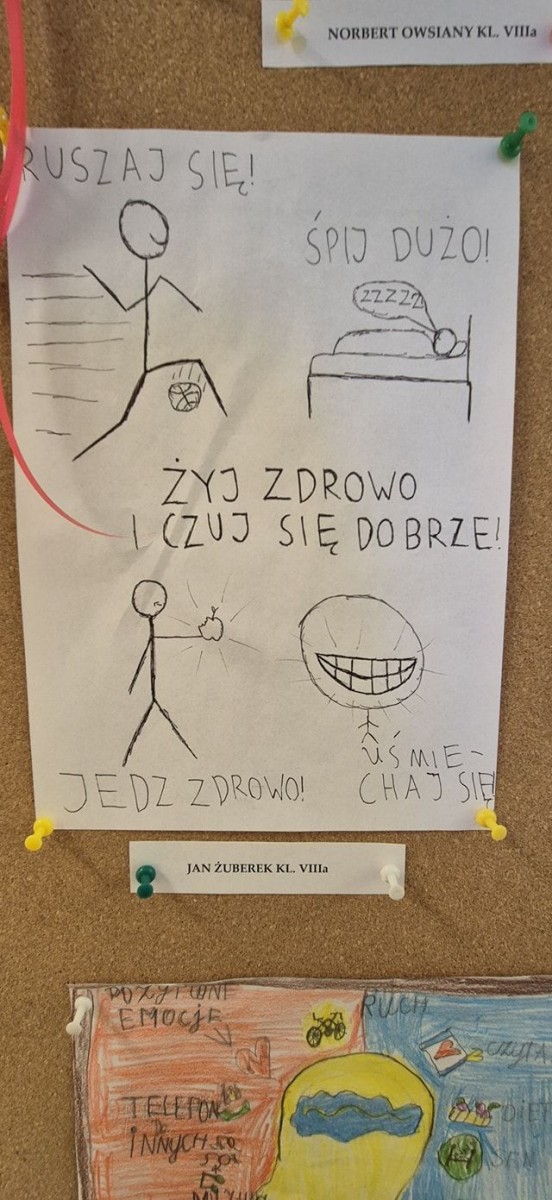 NORBERT OWSIANY KL. VIIIa
RUSZAJ SIĘ!
ŚPIJ DUŻO!
ZZZZZ
ŻYJ ZDROWO
I CZUJ SIĘ DOBRZE!
JEDZ ZDROWO!
UŚMIE-
CHAJ SIĘ!
JAN ŻUBEREK KL. VIIIa
POZYTYWNE
EMOCJE
RUCH
CZYTA
TELEFON
DO
INNYCH
DIE
SEN